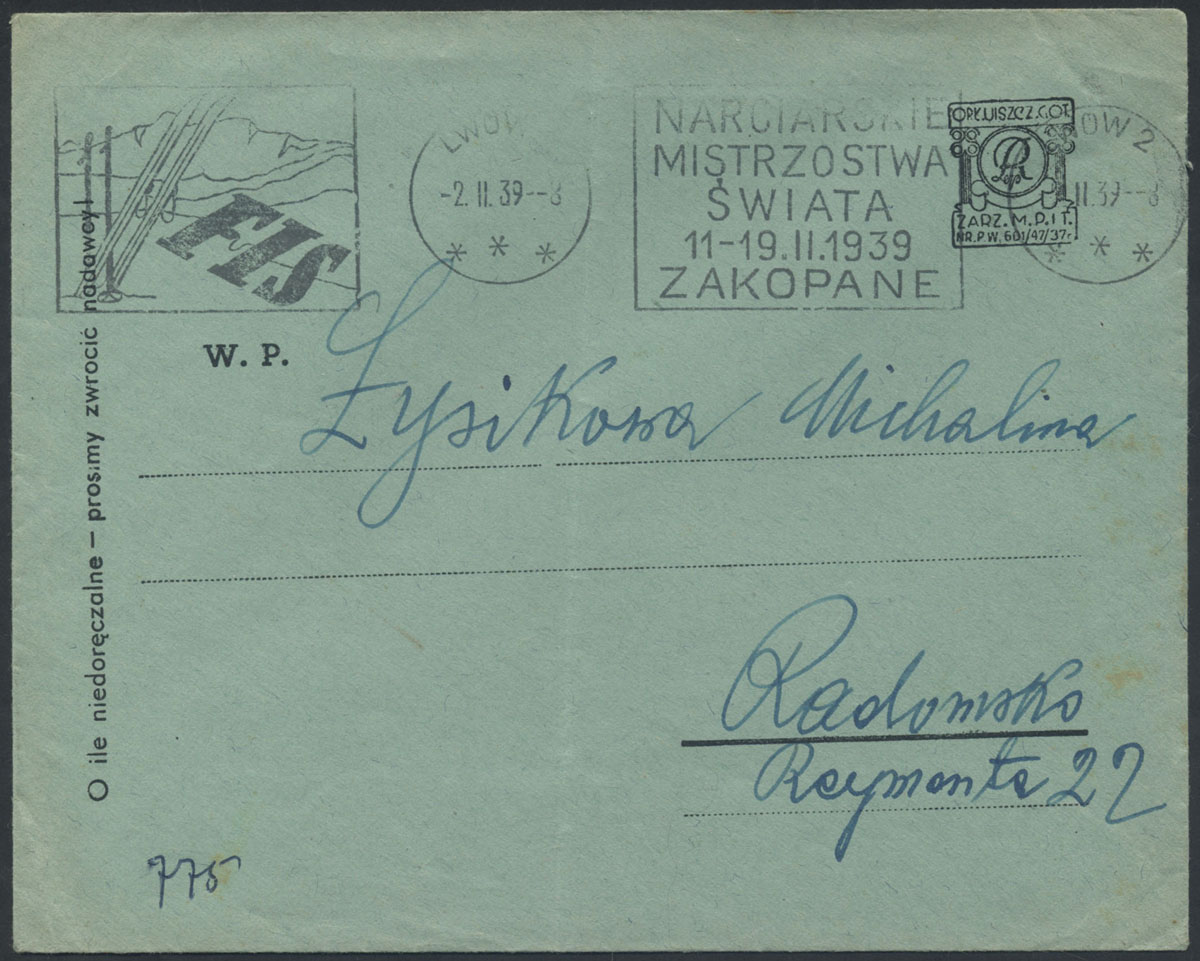 FIS
LWÓW
-2.II.39--8
* * *
NARCIARSKIE
MISTRZOSTWA
ŚWIATA
11-19.II.1939
ZAKOPANE
OPŁ.UISZCZ.GOT.
ZARZ. M. P. i T.
NR. P W. 601/47/37r
LWÓW 2
II.39--8
* * *
O ile niedoręczalne – prosimy zwrócić nadawcy!
W. P.
Łysikowa Michalina
Radomsko
Reymonta 22
775